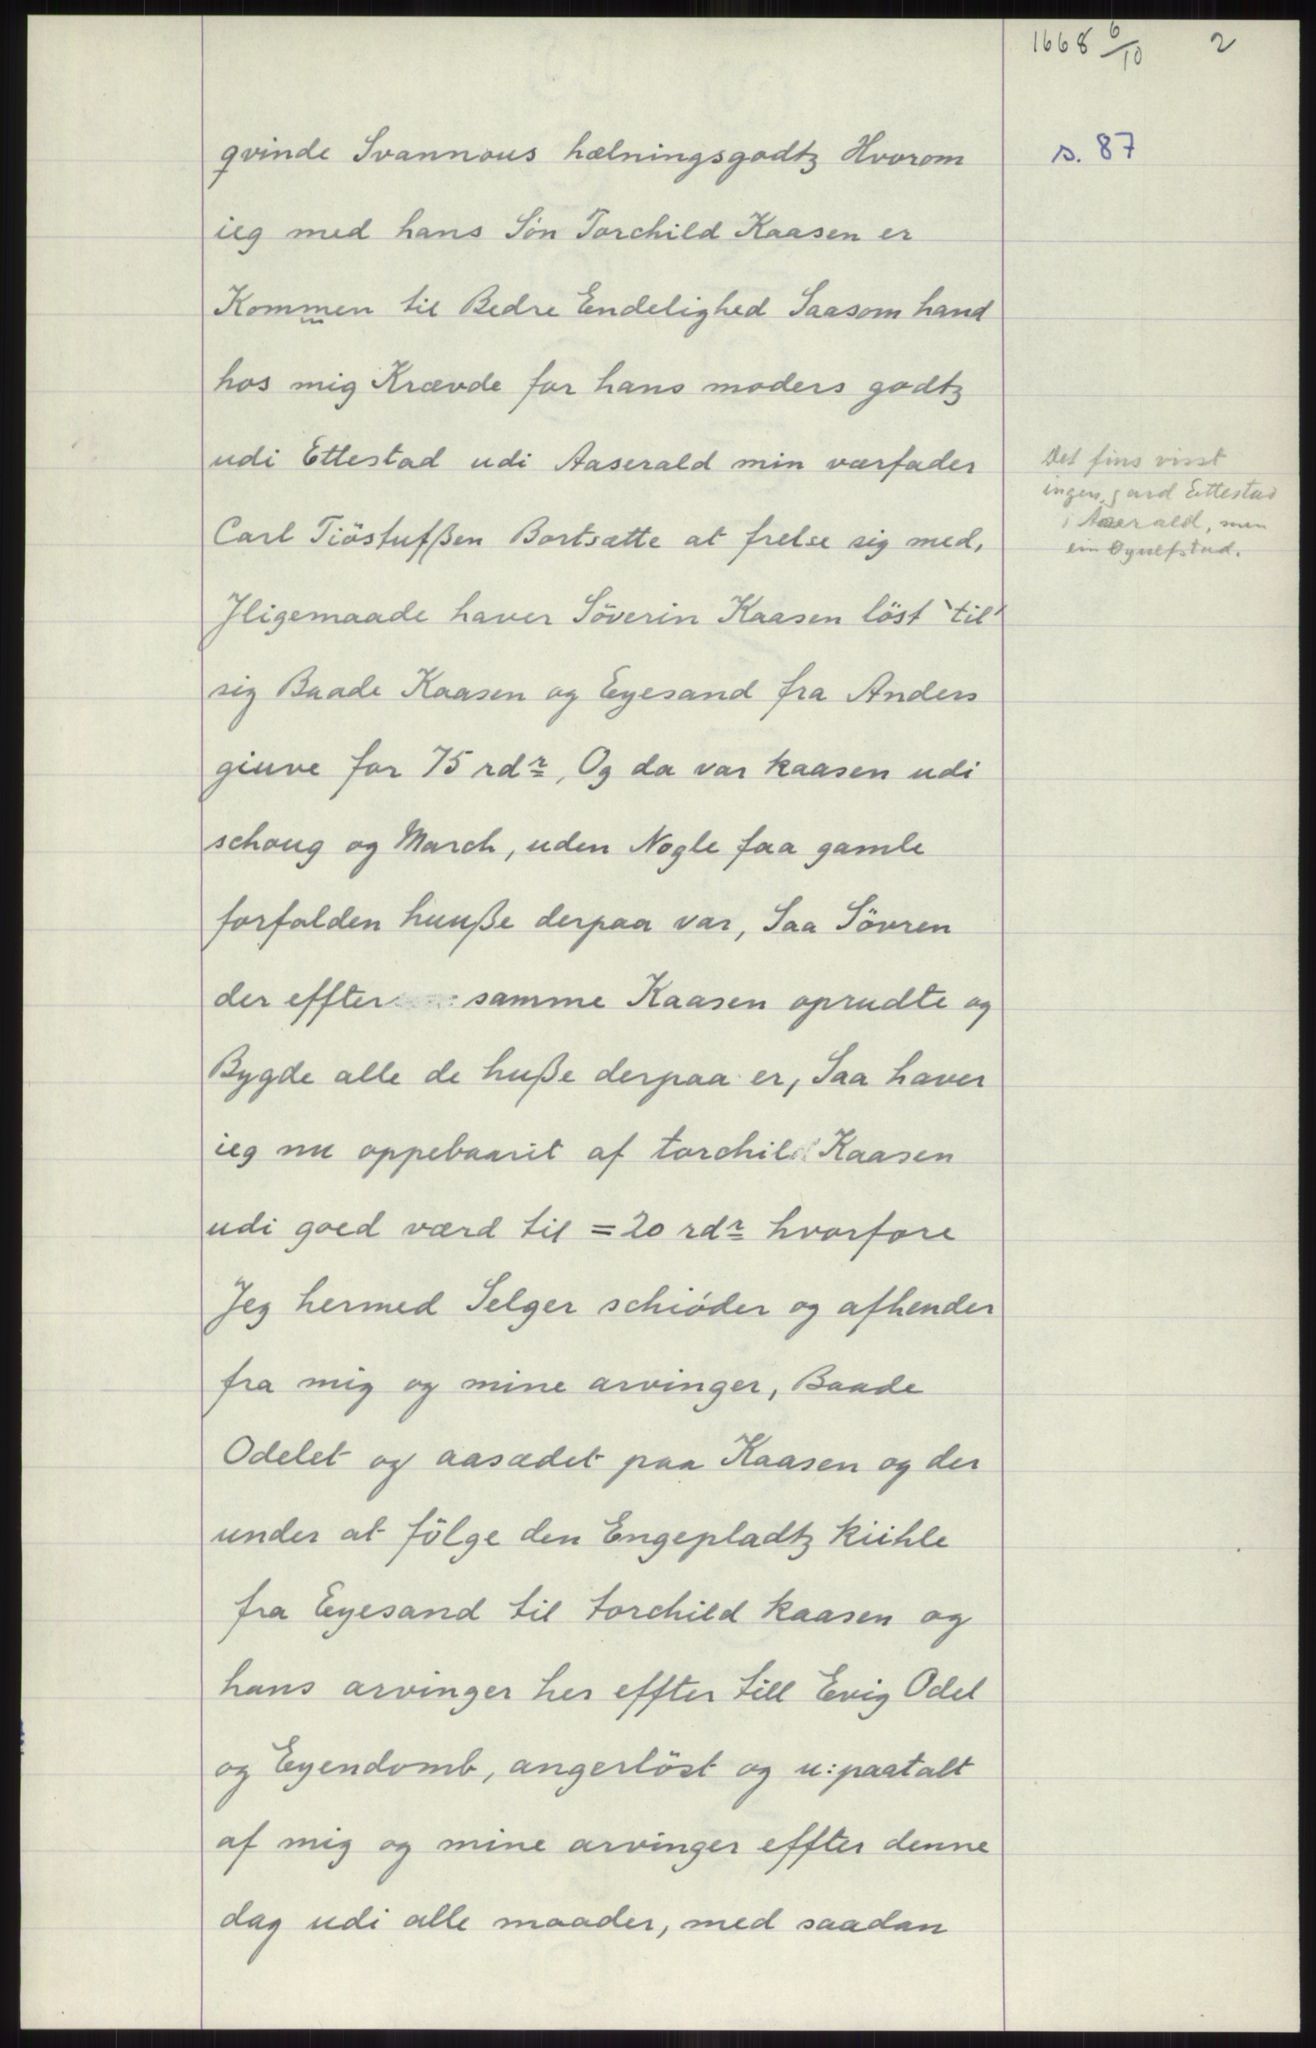 1668 6/10 2
s. 87
qvinde Svannous hælningsgodtz Hvorom
ieg med hans Sön Torchild Kaasen er
Kommen til Bedre Endelighed Saasom hand
hos mig Krævde for hans moders godtz
udi Ettestad udi Aaserald min værfader
Carl Tiöstufßen Bortsætte at frelse sig med,
Jligemaade haver Söverin Kaasen löst `til´
sig Baade Kaasen og Eyesand fra Anders
giuve for 75 rdr, Og da var kaasen udi
schoug og March, uden Nogle faa gamle
forfalden huuße derpaa var, Saa Sövren
der effter samme Kaasen oprudte og
Bygde alle de huße derpaa er, Saa haver
ieg nu oppebaarit af torchild Kaasen
udi goed værd til =20 rdr hvorfore
Jeg hermed Selger schiöder og afhender
fra mig og mine arvinger, Baade
Odelet og aasædet paa Kaasen og der
under at fölge den Engepladtz kiihle
fra Eyesand til torchild kaasen og
hans arvinger her effter till Evig Odel
og Eyendomb, angerlöst og u:paatalt
af mig og mine arvinger effter denne
dag udi alle maader, med saadan
Det fins visst
ingen gard Ettestad
i Aaserald, men
ein Oyulfstad.